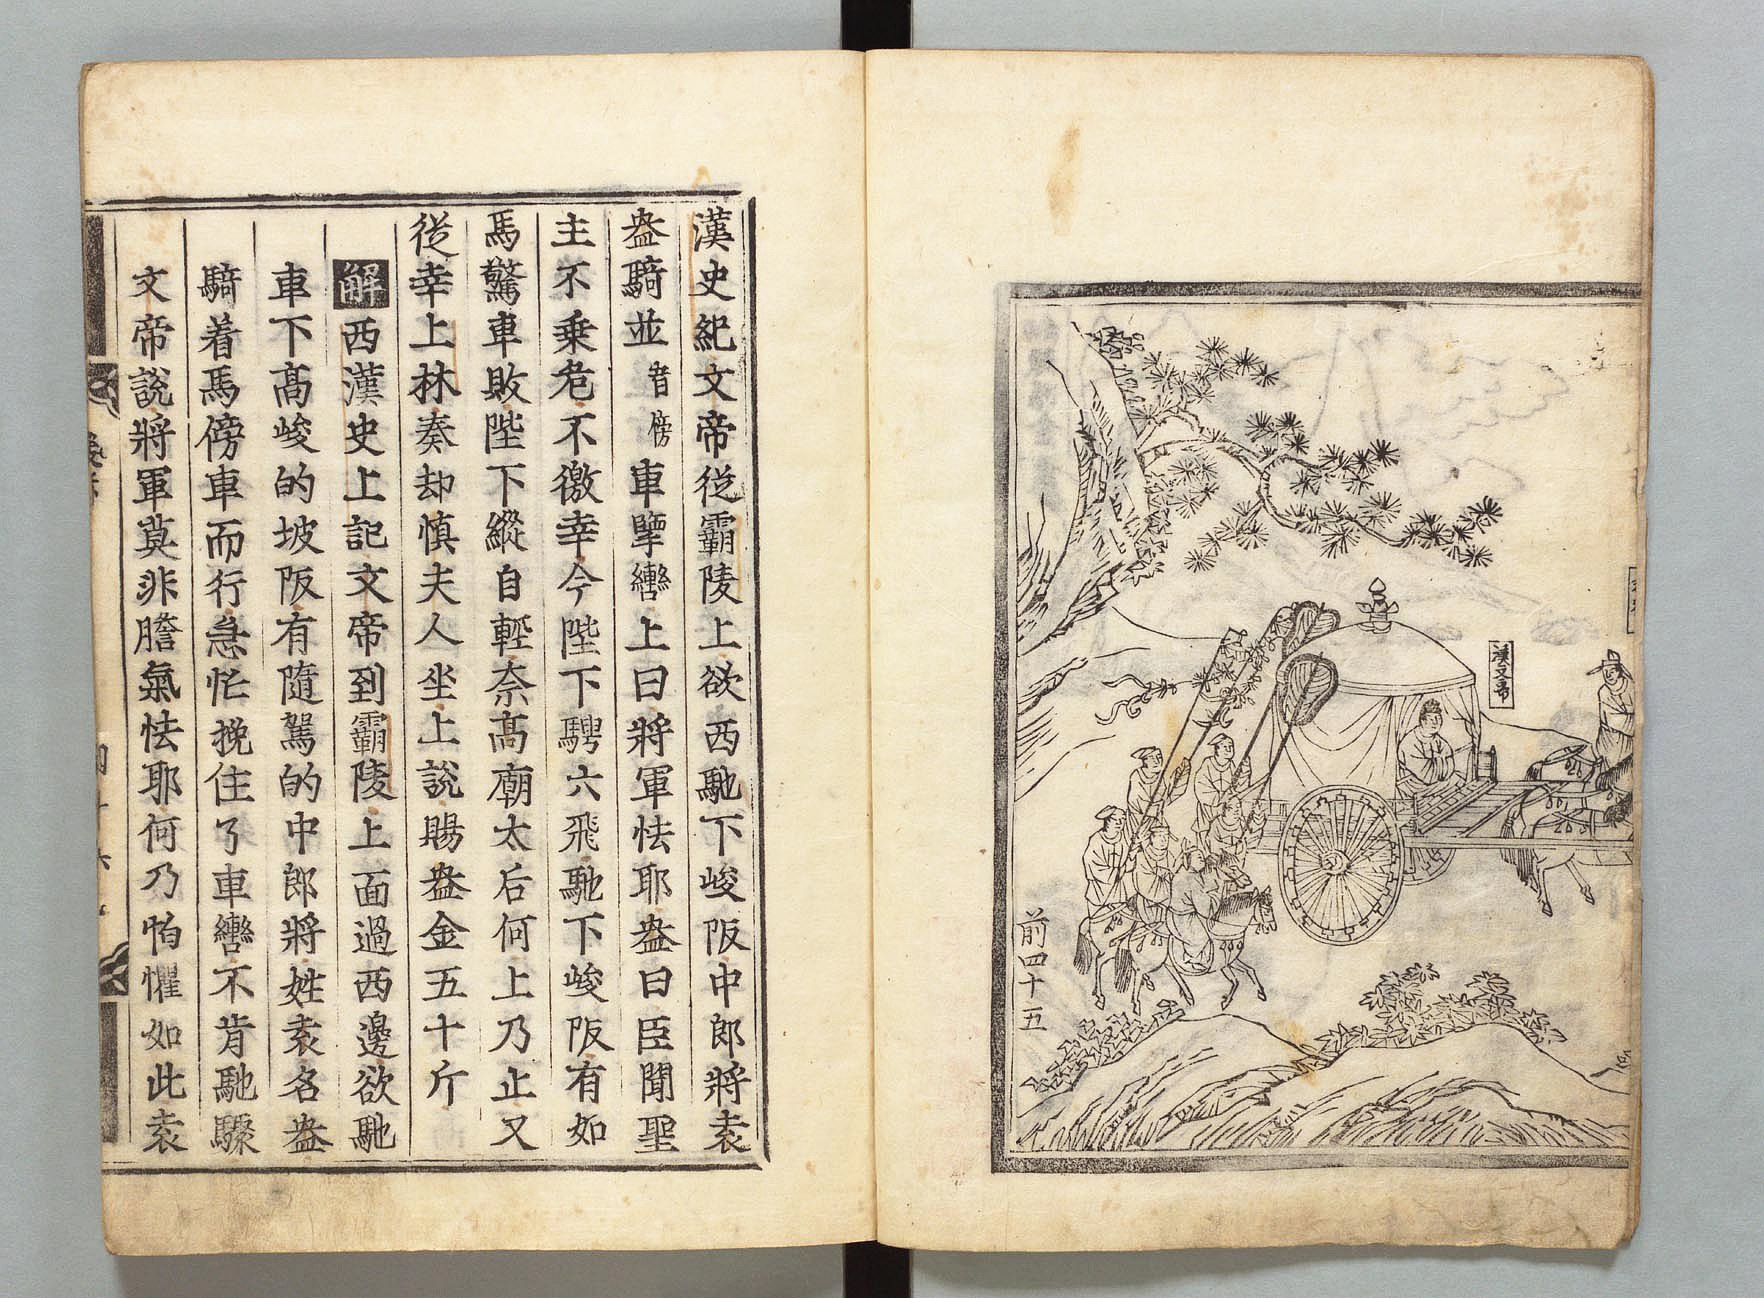 漢文帝
前四十五
漢史紀文帝從霸陵上欲西馳下峻阪中郎將袁
盎騎並音傍車擥轡上曰將軍怯耶盎曰臣聞聖
主不乗危不徼幸今陛下騁六飛馳下峻阪有如
馬驚車敗陛下縱自輕奈髙廟太后何上乃止又
從幸上林奏却慎夫人坐上說賜盎金五十斤
解西漢史上記文帝到霸陵上面過西邊欲馳
車下髙峻的坡阪有隨駕的中郎將姓袁名盎
騎着馬傍車而行急忙挽住了車轡不肯馳驟
文帝說將軍莫非膽氣怯耶何乃怕懼如此袁